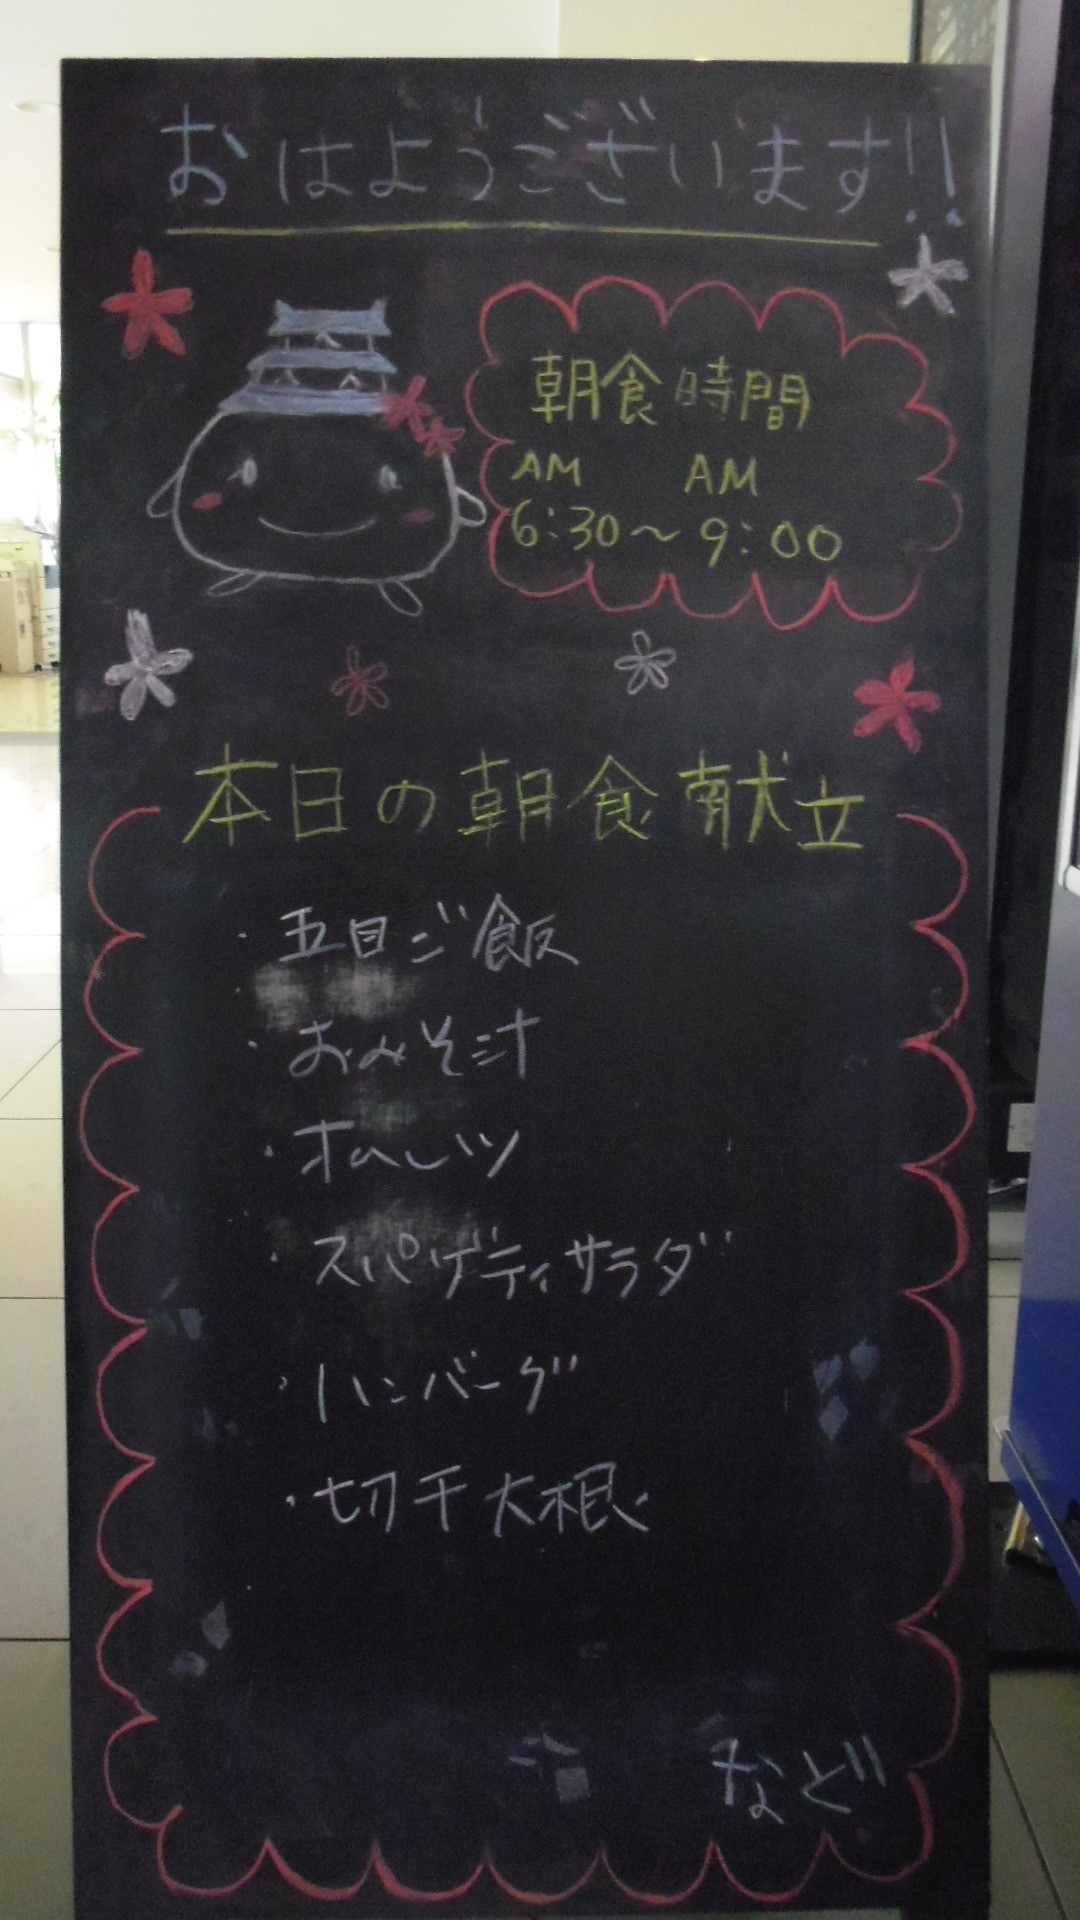 おはようございます!!
朝食時間
AM AM
6:30〜9:00
本日の朝食献立
・五目ご飯
・おみそ汁
・オムレツ
・スパゲティサラダ
・ハンバーグ
・切干大根
など